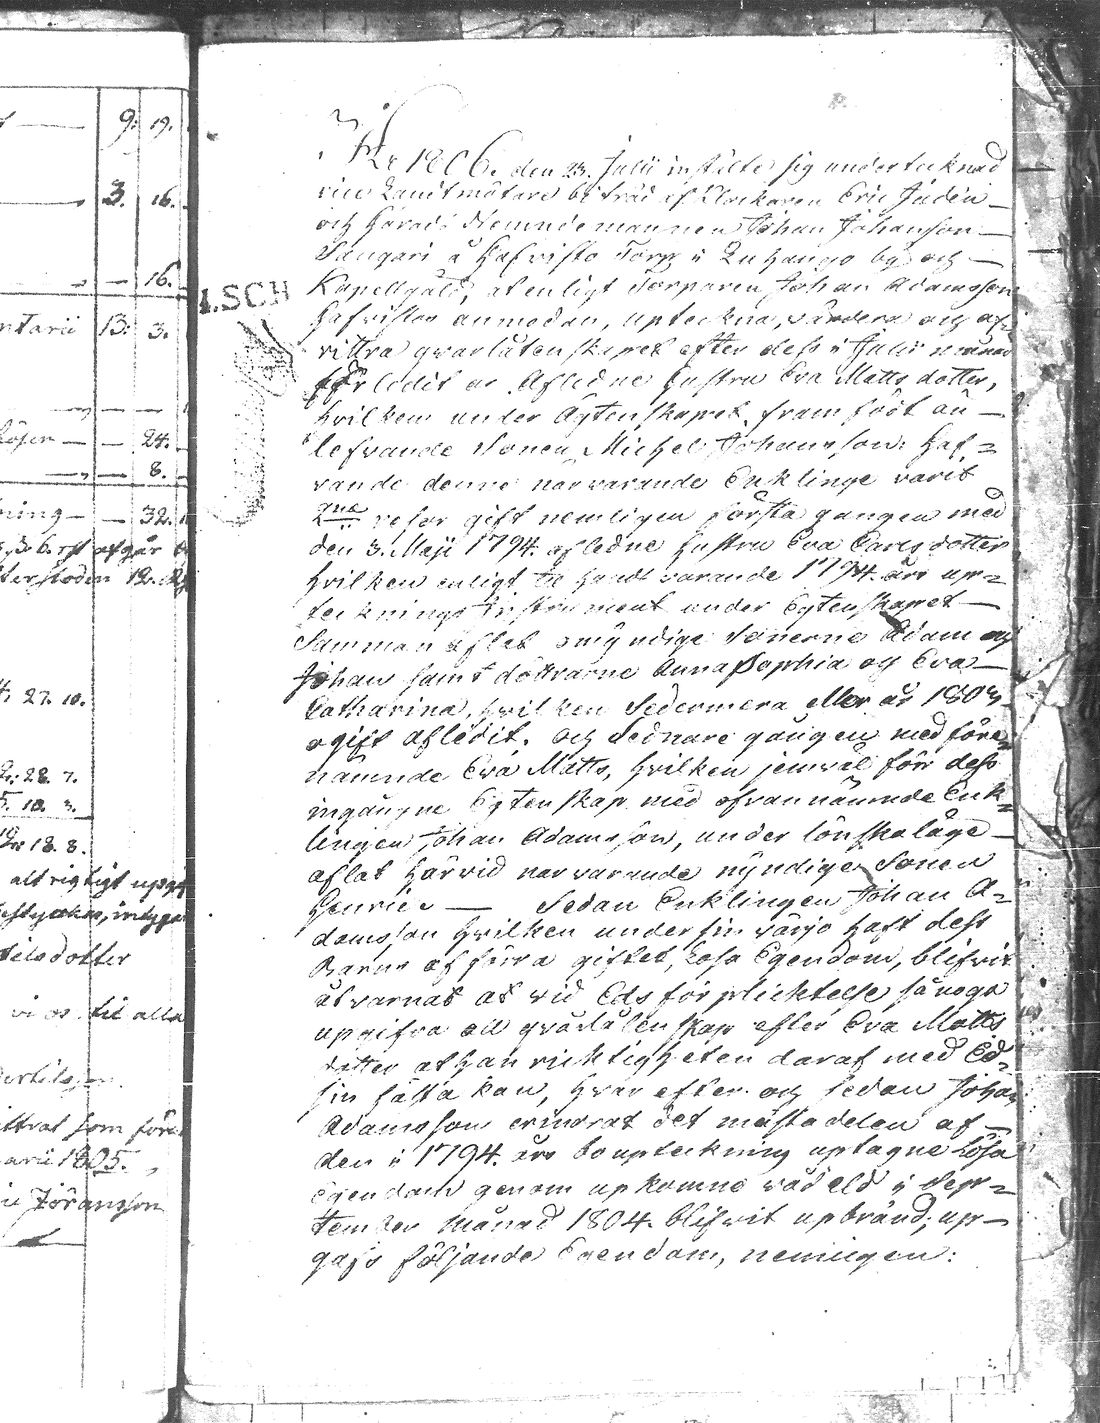 9. 19.
3. 16.
16.
ntarii 13. 3.
lösen — — 24.
8.
ning — — 32.
27. 10.
28. 7.
5. 10. 3.
18. 8.
alt rigtigt upgif
delsdotter
vi os til alla
ittrat som före
arii 1805.
Jöransson
År 1806. den 23. Julii instälte sig undertecknad
vice Landtmätare biträd af Klockaren Eric Judin
och Härads Nämndemannen Johan Johansson
å Hafvisto Torp i by och
Kapellgäld, at enligt Torparen Johan Adamsson
Hafvistos anmodan, upteckna, värdera och af-
vittra qvarlåtenskapet efter dess i Julii månad
förledit år Afledne hustru Eva Matts dotter,
hvilken under Ägtenskapet framfödt än
lefvande Sonen Michel Johansson: Haf=
vande denne närvarande Enklinge varit
2ne resor gift nemligen första gangen med
den 3. Maji 1794. afledne hustru Eva Carlsdotter
hvilken enligt til hands varande 1794. års up=
tecknings Instrument under Egtenskapet
Samman aflat omyndige Sönerne Adam och
Johan samt döttrarne Anna Sophia och Eva
Catharina, hvilken Sedermera eller år 1803
ogift afledit. Och Sednare gången med före=
nämnde Eva Matts, hvilken jemväl förr dess
ingångne Egtenskap med ofvannämnde Enk=
lingen Johan Adamsson, under lönskaläge
aflat härvid närvarande myndige Sonen
Henric. — Sedan Enklingen Johan A=
damsson hvilken under sin värjo haft dess
Barns af förra giftet, Lösa Egendom, blifvit
åtvarnat at vid Eds förplicktelse så noga
upgifva all qvarlåtenskap efter Eva Matts
dotter at han richtigheten daraf med Ed=
sin fästa kan, hvar efter och sedan Johan
Adamsson erindrat det mästadelen af
den i 1794. års bouptekning uptagne Lösa
Egendom genom upkomne våd eld i Sep=
tember månad 1804. blifvit upbränd; up-
gafs följande Egendom, nemligen: